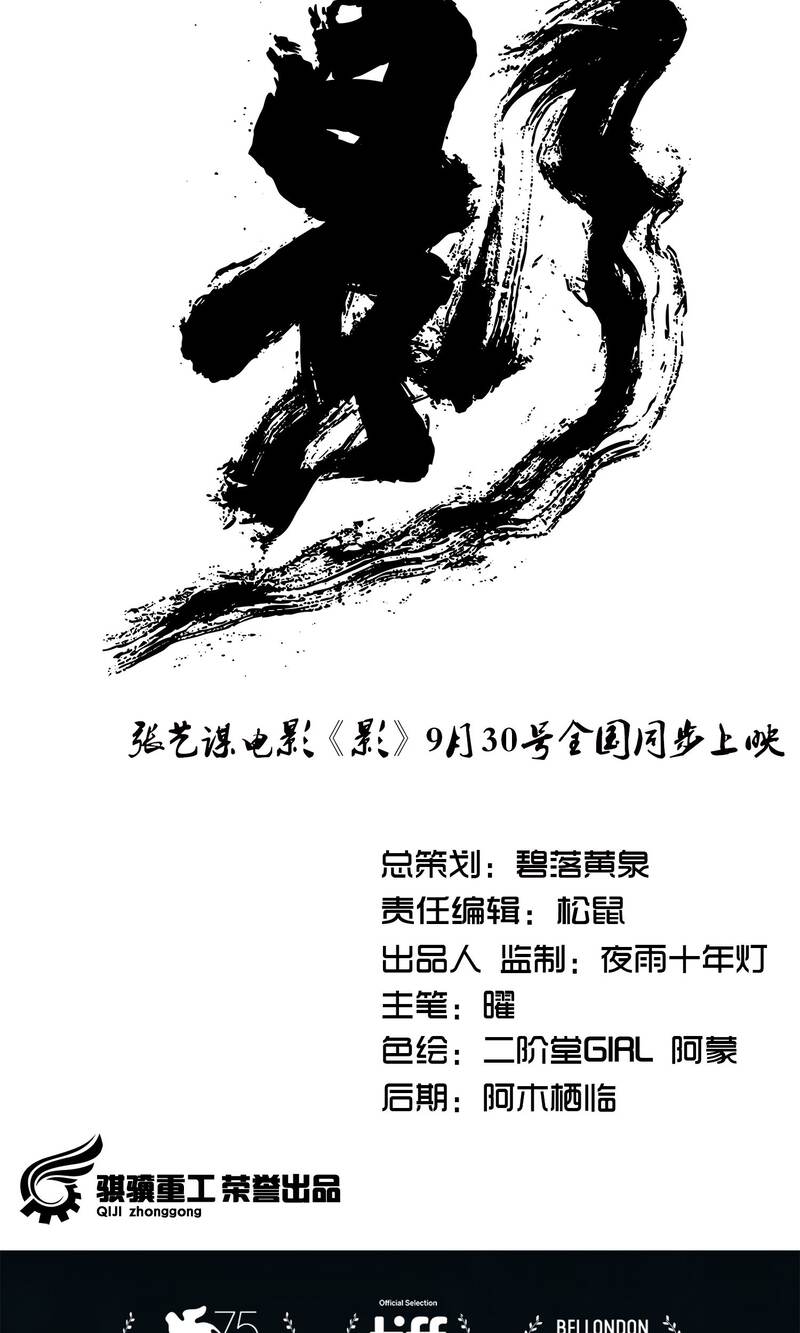 影
张艺谋电影《影》9月30号全国同步上映
总策划：碧落黄泉
责任编辑：松鼠
出品人 监制：夜雨十年灯
主笔：曜
色绘：二阶堂GIRL 阿蒙
后期：阿木栖临
骐骥重工 荣誉出品
QIJI zhonggong
Official Selection
75
tiff
BFI LONDON